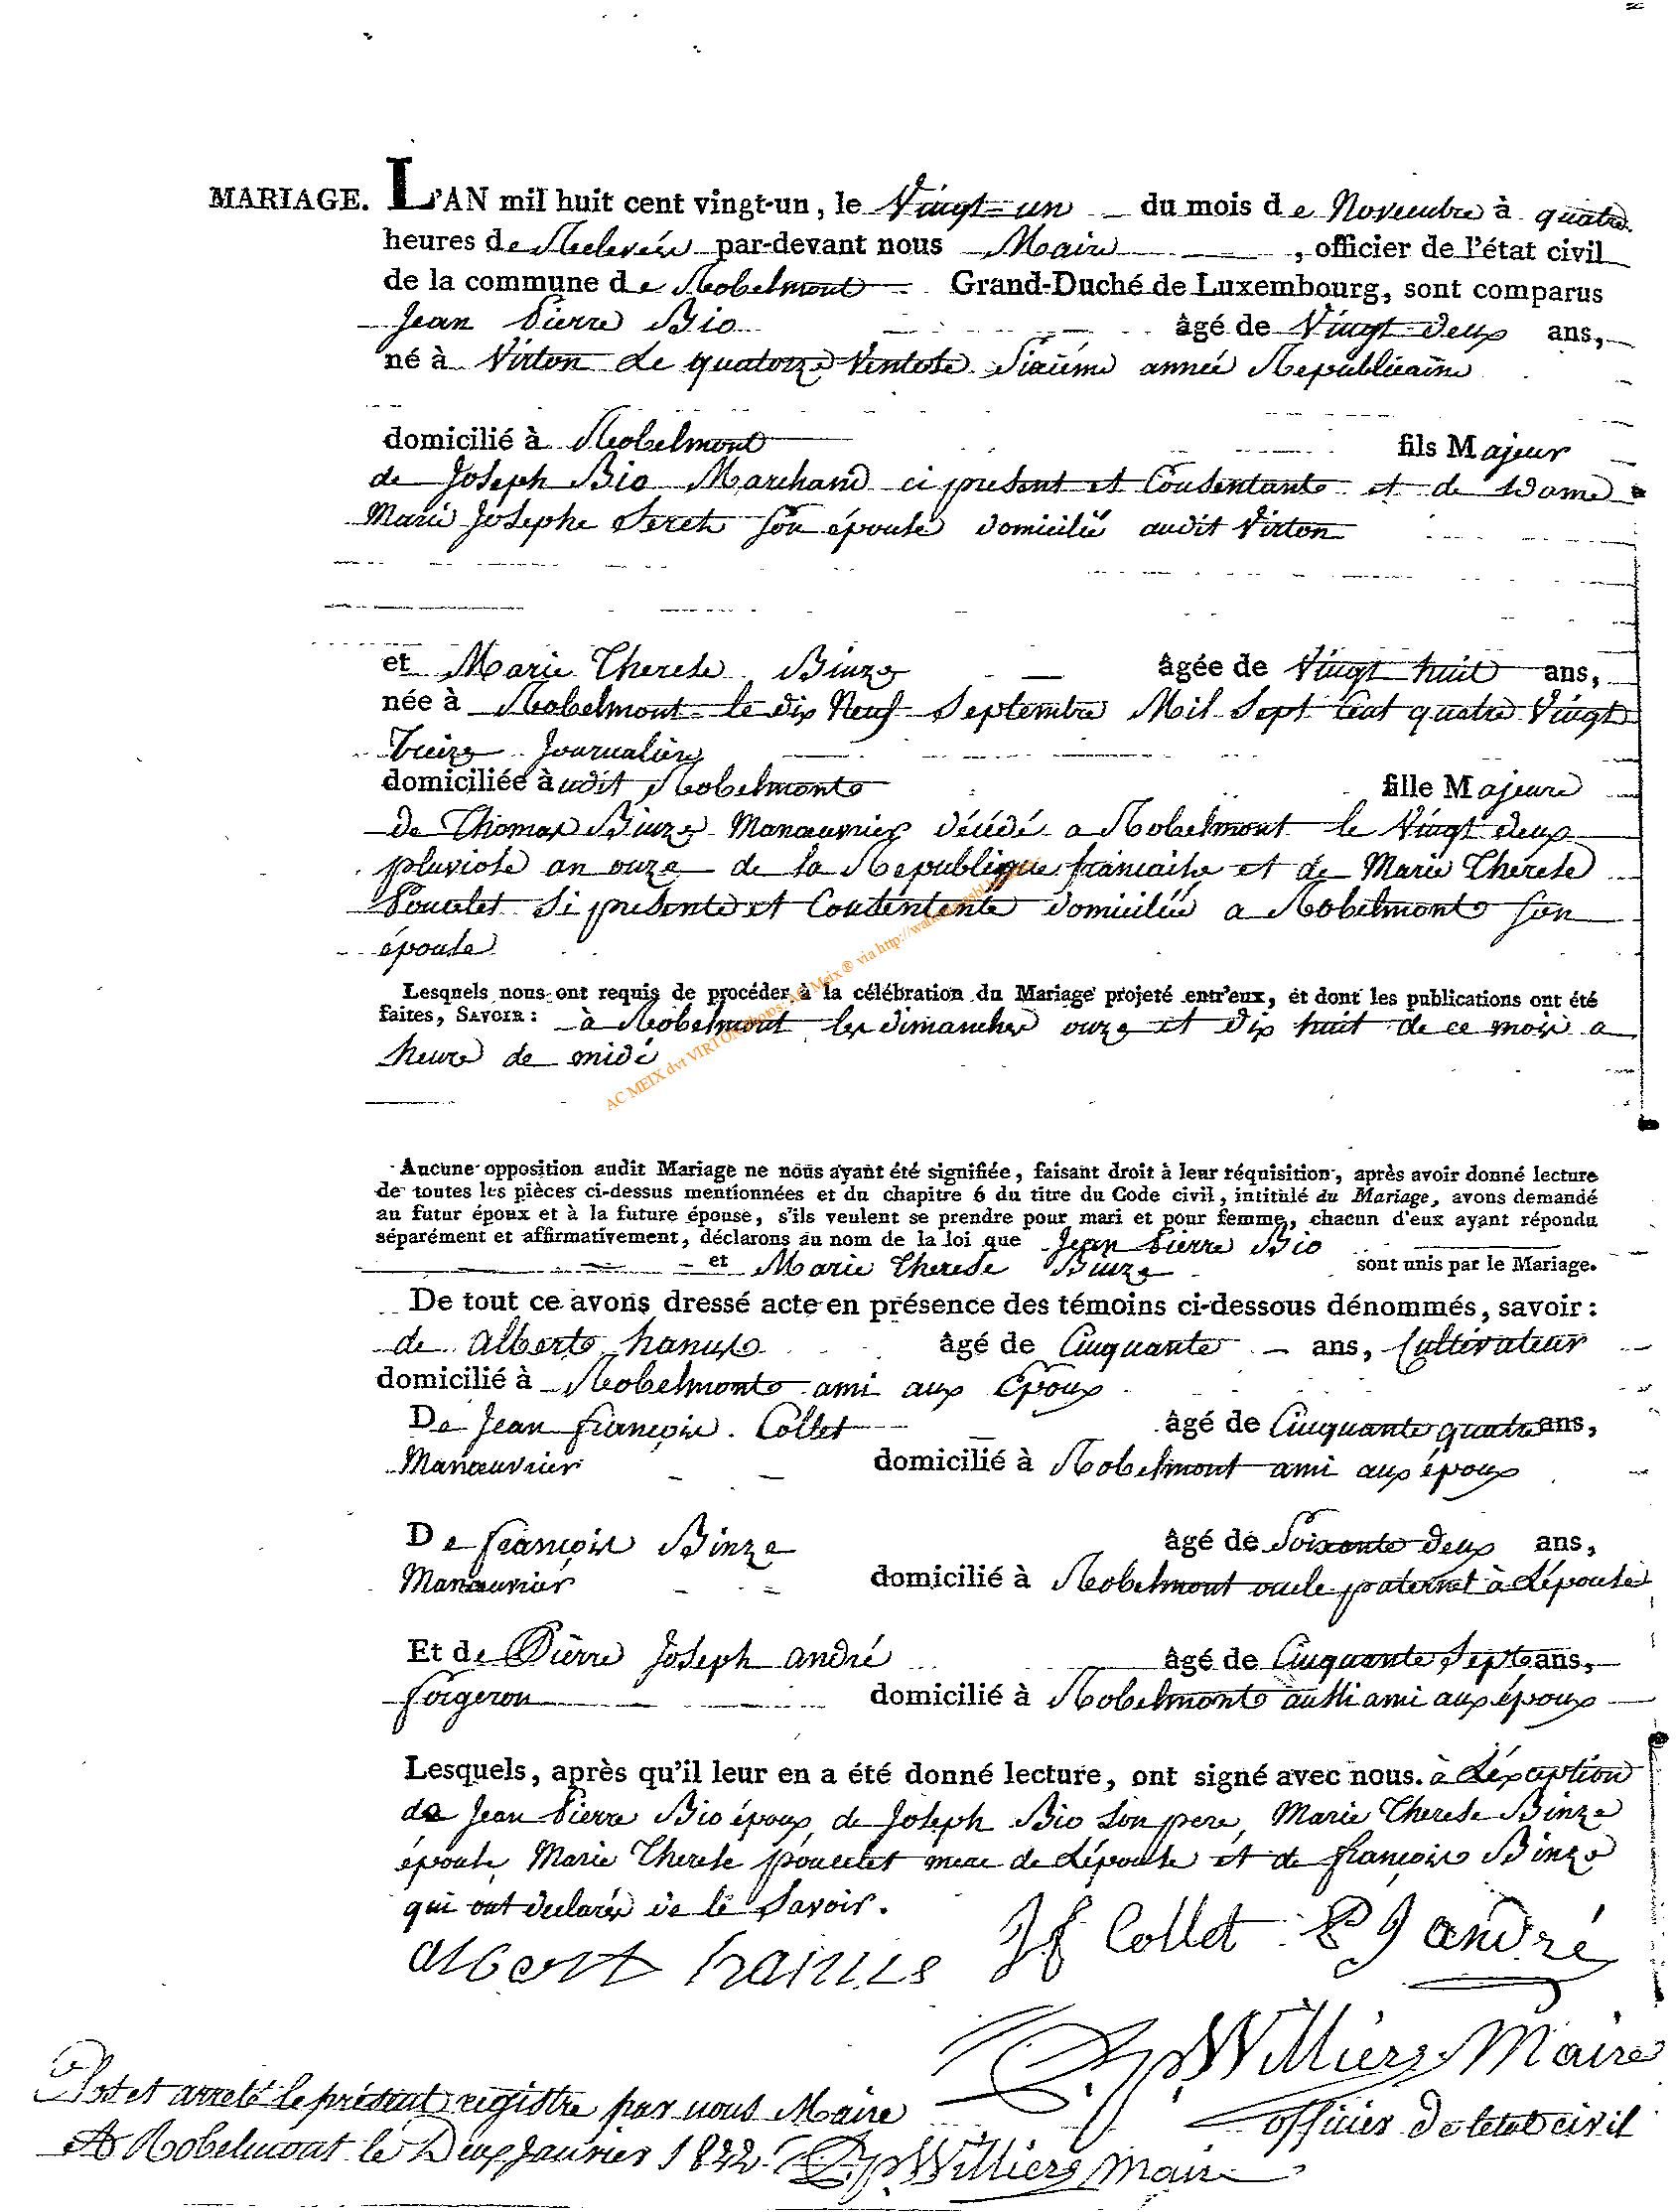 MARIAGE. L'AN mil huit cent vingt-un, le Vingt-un du mois de Novembre à quatre
heures de Relevée par-devant nous Maire, officier de l'état civil
de la commune de Robelmont Grand-Duché de Luxembourg, sont comparus
Jean Pierre Bio âgé de Vingt deux ans,
né à Virton Le quatorze Ventose Sixième année Republicaine
domicilié à Robelmont fils Majeur
de Joseph Bio Marchand ci present et Consentante et de Dame
Marie Josephe Seret Son épouse domicilié audit Virton
et Marie Therese Binze âgée de Vingt huit ans,
née à Robelmont le dix Neuf Septembre Mil Sept Cent quatre Vingt
Treize Journalière
domiciliée à udit Robelmont fille Majeure
de Thomas Binze Manœuvrier décédé a Robelmont le Vingt deux
pluviose an onze de la Republique francaise et de Marie Therese
Poncelet Si presente et Consentente domiciliée a Robelmont Son
épouse
Lesquels nous ont requis de procéder à la célébration du Mariage projeté entr'eux, et dont les publications ont été
faites, SAVOIR : à Robelmont les dimanches onze et dix huit de ce mois a
heure de midi
AC MEIX dvt VIRTON photos: AC Meix® via http://
Aucune opposition audit Mariage ne nous ayant été signifiée, faisant droit à leur réquisition, après avoir donné lecture
de toutes les pièces ci-dessus mentionnées et du chapitre 6 du titre du Code civil, intitulé du Mariage, avons demandé
au futur époux et à la future épouse, s'ils veulent se prendre pour mari et pour femme, chacun d'eux ayant répondu
séparément et affirmativement, déclarons au nom de la loi que Jean Pierre Bio
et Marie Therese Binze sont unis par le Mariage.
De tout ce avons dressé acte en présence des témoins ci-dessous dénommés, savoir :
de Albert hanus âgé de Cinquante ans, Cultivateur
domicilié à Robelmont ami aux Epoux
De Jean François Collet âgé de Cinquante quatre ans,
Manœuvrier domicilié à Robelmont ami aux époux
De François Binze âgé de Soixante deux ans,
Manœuvrier domicilié à Robelmont oncle paternel à L'épouse
Et de Pierre Joseph andré âgé de Cinquante Sept ans,
forgeron domicilié à Robelmont aussi ami aux époux
Lesquels, après qu'il leur en a été donné lecture, ont signé avec nous. à L'éxception
de Jean Pierre Bio époux, de Joseph Bio Son pere, Marie Therese Binze
épouse, Marie Therese poncelet mere de L'épouse et de françois Binze
qui ont declarés de le Savoir.
albert hanus Jf Collet P J andré
Willière Maire
officier de letat civil
Clos et arreté le présent registre par nous Maire
A Robelmont le Deux Janvier 1822. Willière maire